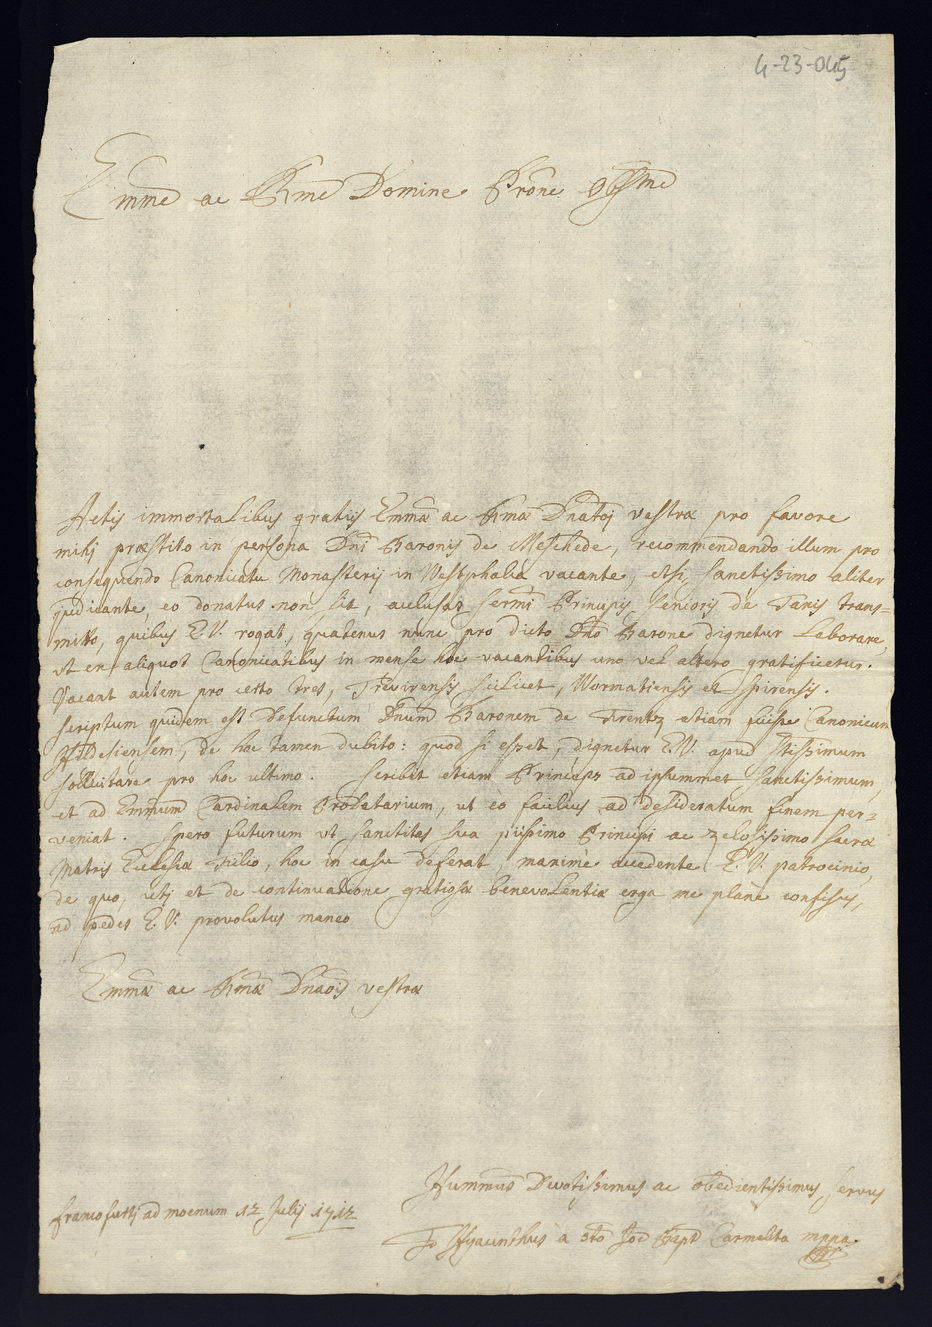 4-23-045
Emme ac Rme Domine Prone Obssme
Actis immortalibus gratijs Emmæ ac Rmæ Dnatoj vestræ pro favore
mihj præstito in persona Dni Baronis de Meschede, recommendando illum pro
consequendo Canonicatu Monasterij in Westphalia vacante, etsi, sanctissimo aliter
judicante, eo donatus non sit, acclusas sermi Principis senioris de Tanis trans=
mitto, quibus E.V. rogat, quatenus nunc pro dicto Dno Barone dignetur laborare,
ut en aliquot Canonicatibus in mense hoc vacantibus uno vel altero gratificetur.
Vacant autem pro certo tres, Trevirensis scilicet, Wormatiensis et Spirensis.
scriptum quidem est defunctum Dnum Baronem de Frentz etiam fuisse Canonicum
Hildesiensem, de hoc tamen dubito: quod si esset, dignetur E.V. apud stissimum
sollicitare pro hoc ultimo. Scribit etiam Princeps ad ipsummet sanctissimum,
et ad Emmum Cardinalem Prodatarium, ut eo facilius ad desideratum finem per=
veniat. Spero futurum ut sanctitas sua piissimo Principi ac zelosissimo sacræ
Matris Ecclesiæ Filio, hoc in casu deferat, maxime accedente E.V. patrocinio,
de quo, utj et de continuatione gratiosæ benevolentiæ erga me plane confisus,
ad pedes E.V. provolutus maneo
Emmæ ac Rmæ Dnaois vestræ
Hummus Devotissimus ac obedientissimus servus
francofurtj ad moenum 12 Julij 1712
Hyacinthus a sto Carmelita mppa.